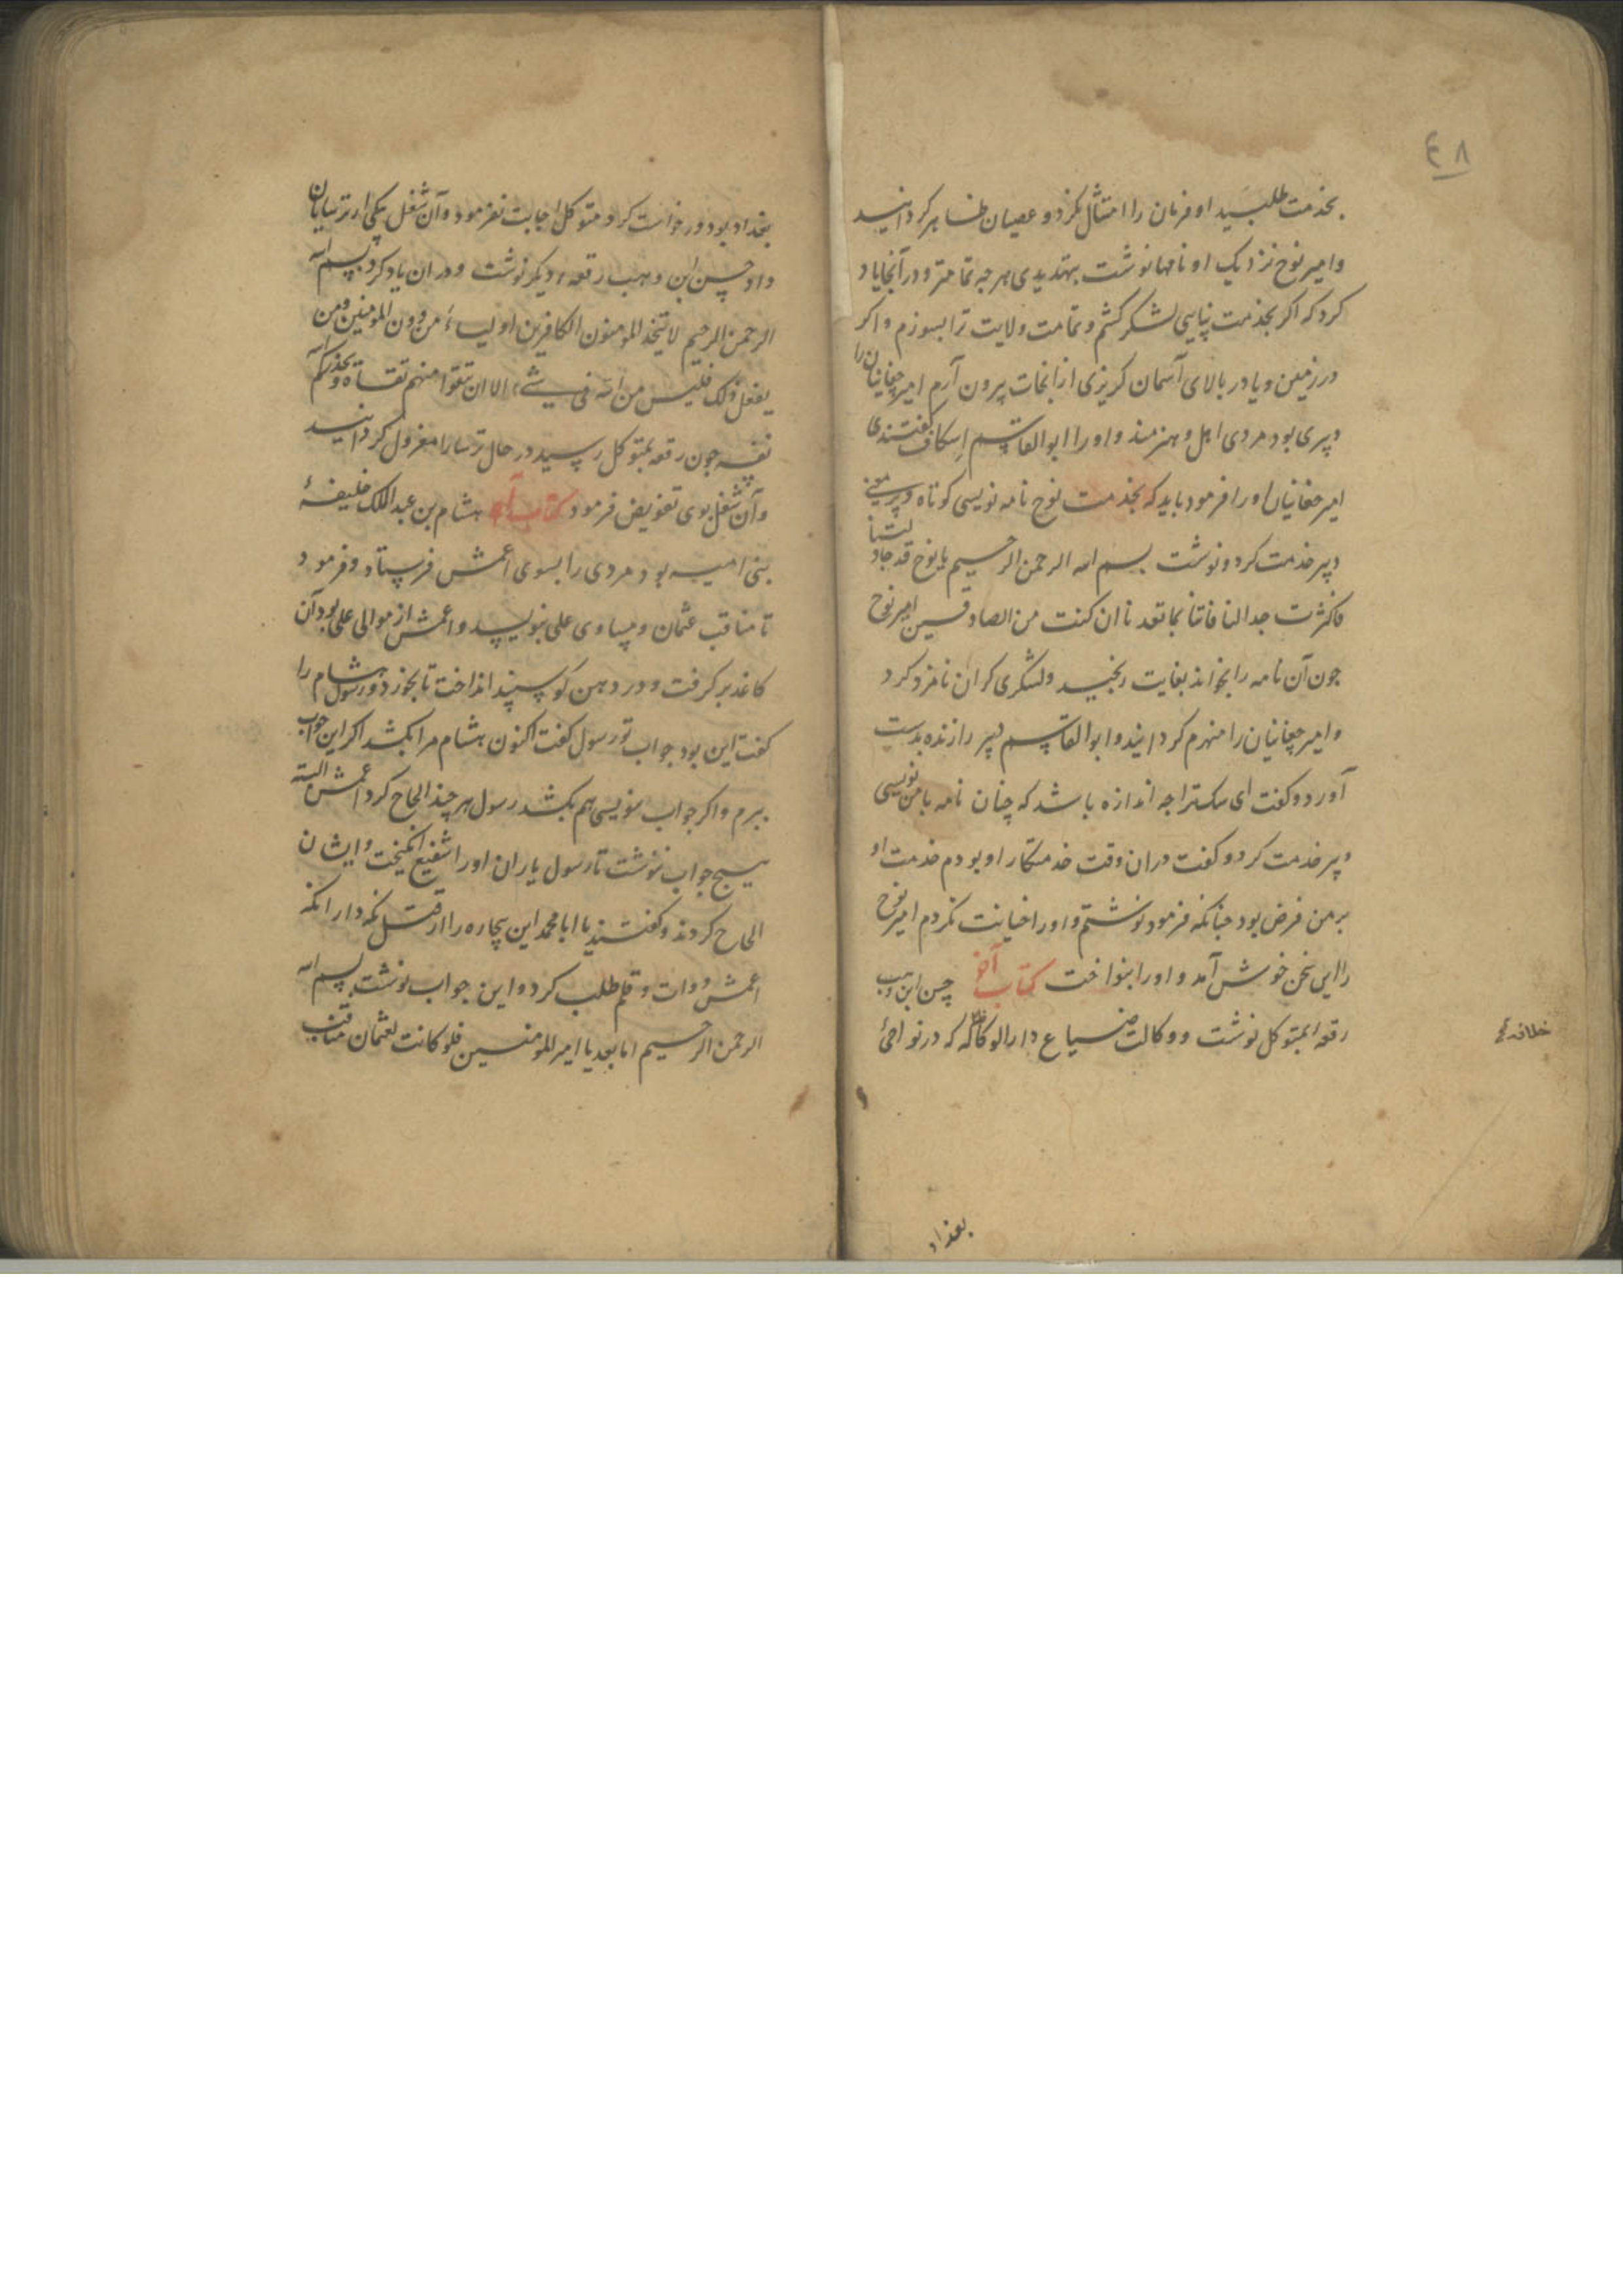 ٤٨
بخدمت طلبید او فرمان را امتثال نکرد و عصیان ظاهر کردانید
و امیر نوح نزدیک او نامها نوشت بتهدیدی هرجه تمامتر و در آنجا یاد
کرد که اکر بخدمت نیایی لشکر کشم و تمامت ولایت ترا بسوزم و اکر
در زمین و یا در بالای آسمان کریزی از انجات بیرون آرم امیر چغانیان را
دبیری بود مردی اهل و هنرمند و او را ابوالقاسم اسکاف کفتندی
امیر چغانیان او را فرمود باید که بخدمت نوح نامه نویسی کوتاه و پرمعنی
دبیر خدمت کرد و نوشت بسم الله الرحمن الرحیم یا نوح قد جادلتنا
فاکثرت جدالنا فاتنا بما تعدنا ان کنت من الصادقین امیر نوح
جون آن نامه را بخواند بغایت رنجید و لشکری کران نامزد کرد
و امیر چغانیان را منهزم کردانید و ابوالقاسم دبیر را زنده بدست
آورد و کفت ای سک ترا جه اندازه باشد که چنان نامه بامن نویسی
دبیر خدمت کرد و کفت دران وقت خدمتکار او بودم خدمت او
بر من فرض بود جنانکه فرمود نوشتم و او را خیانت نکردم امیر نوح
را این سخن خوش آمد و او را بنواخت کتاب آخر حسن ابن وهب
رقعه بمتوکل نوشت و وکالت ضیاع دارالوکاله که در نواحئ
خلافه
بغداد
بغداد بود درخواست کرد متوکل اجابت نفرمود و آن شغل یکی از ترسایان
داد حسن ابن وهب رقعه دیکر نوشت و دران یاد کرد بسم الله
الرحمن الرحیم لا یتخذ المومنون الکافرین اولیاء من دون المومنین ومن
یفعل ذلک فلیس من الله فی شیء الا ان تتقوا منهم تقاة ویحذرکم الله
نفسه جون رقعه بمتوکل رسید در حال ترسا را معزول کردانید
و آن شغل بوی تفویض فرمود کتاب آخر هشام بن عبدالملک خلیفهٔ
بنی امیه بود مردی را بسوی اعمش فرستاد و فرمود
تا مناقب عثمان و مساوی علی بنویسد و اعمش از موالی علی بود آن
کاغذ بر کرفت و در دهن کوسپند انداخت تا بخورد و رسول هشام را
کفت این بود جواب تو رسول کفت اکنون هشام مرا بکشد اکر این جواب
ببرم و اکر جواب ننویسی هم بکشد رسول هر چند الحاح کرد اعمش البته
هیچ جواب ننوشت تا رسول یاران او را شفیع انکیخت و ایشان
الحاح کردند و کفتند یا ابا محمد این بیچاره را از قتل نکه دار انکه
اعمش دوات و قلم طلب کرد و این جواب نوشت بسم الله
الرحمن الرحیم اما بعد یا امیر المومنین فلو کانت لعثمان مناقب